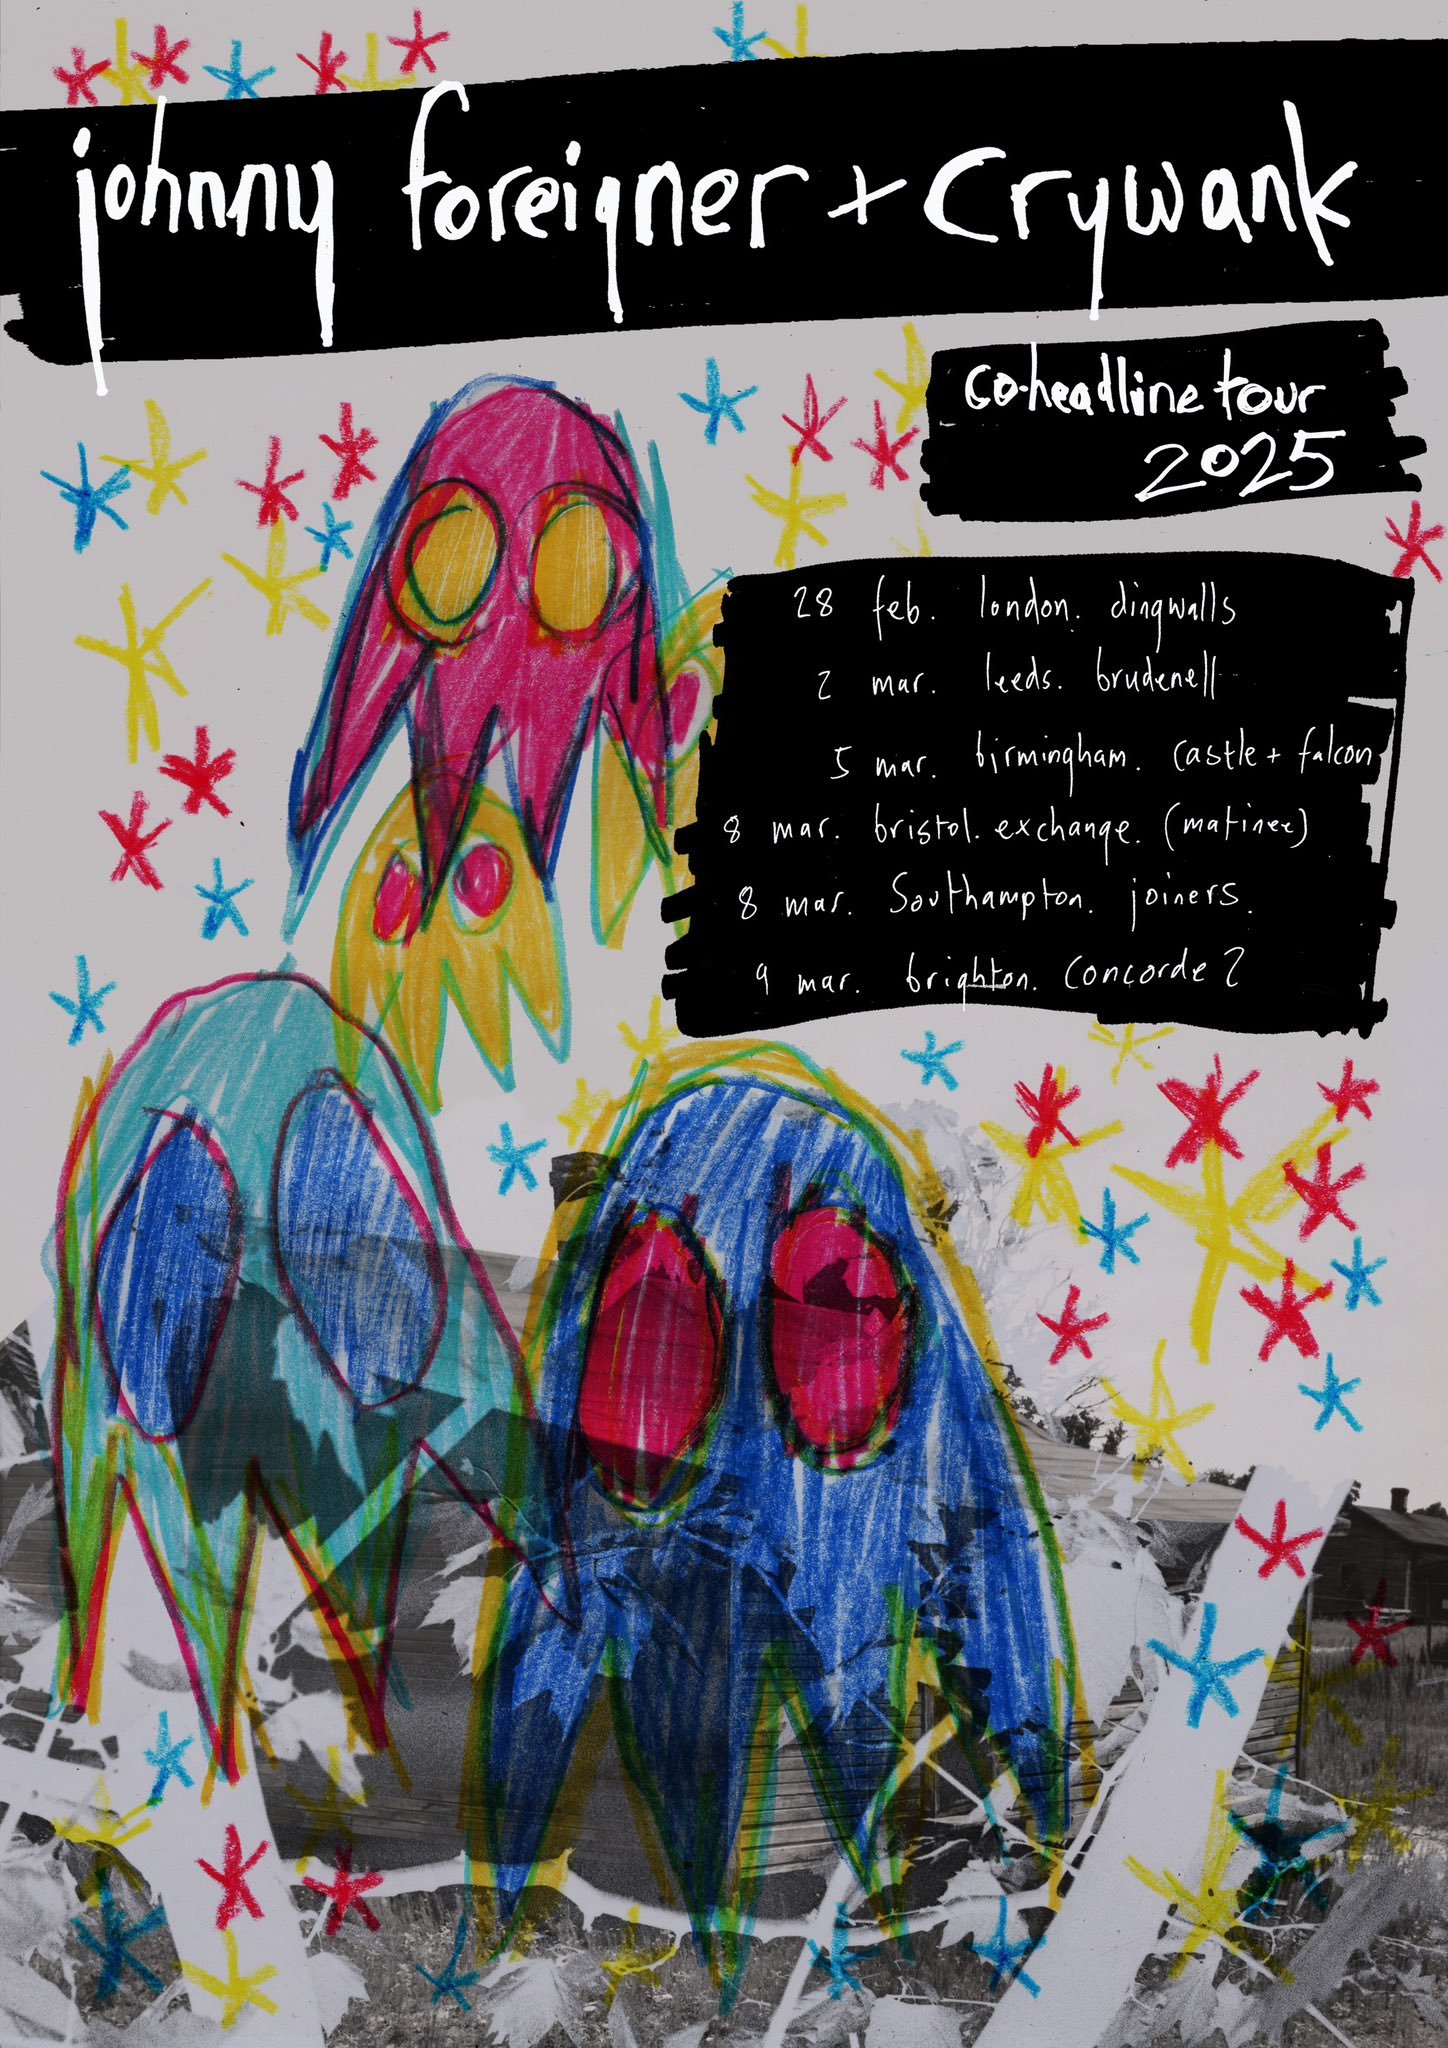 johnny foreigner + crywank
co-headline tour
2025
28 feb. london. dingwalls
2 mar. leeds. brudenell
5 mar. birmingham. castle + falcon
8 mar. bristol. exchange. (matinee)
8 mar. Southampton. joiners.
9 mar. brighton. Concorde 2